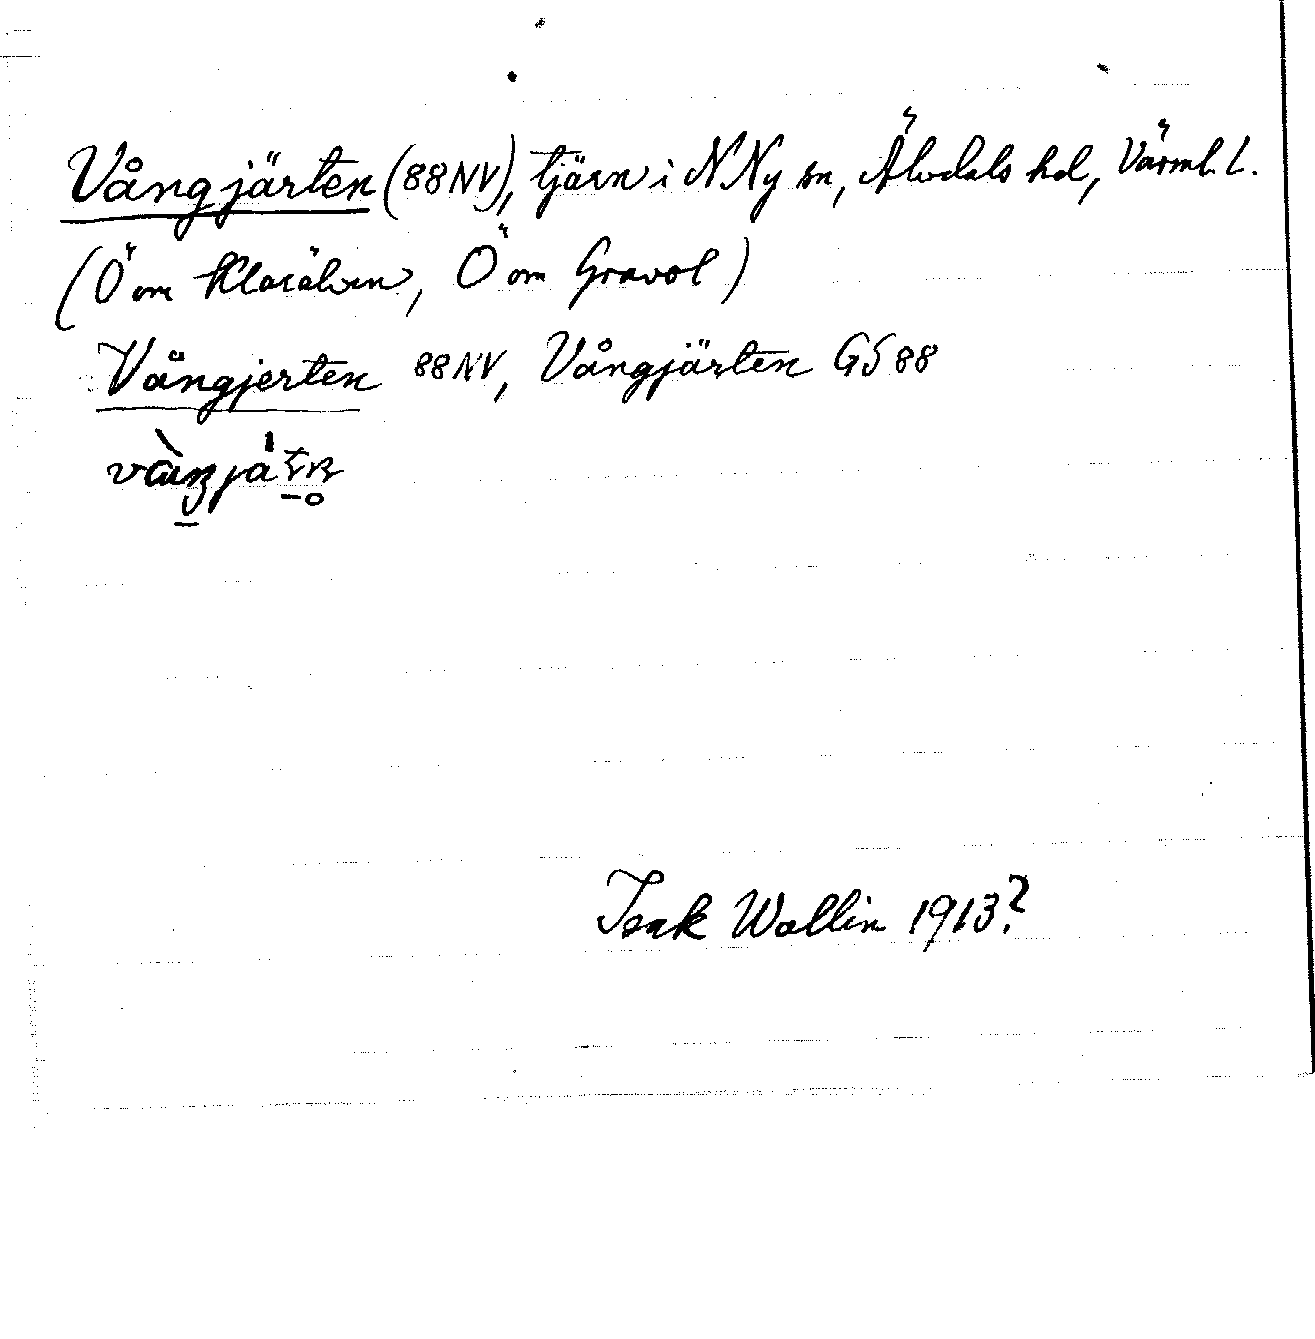 Vångjärten (88NV), tjärn i N Ny sn, Älvdals hd, Värml. l.
(Ö om Klarälven, Ö om Gravol)
Vångjerten 88NV, Vångjärten GS 88
Isak Wallin 1913?